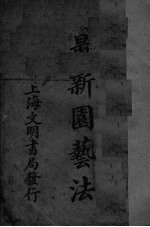 最新園藝法
上海文明書局發行